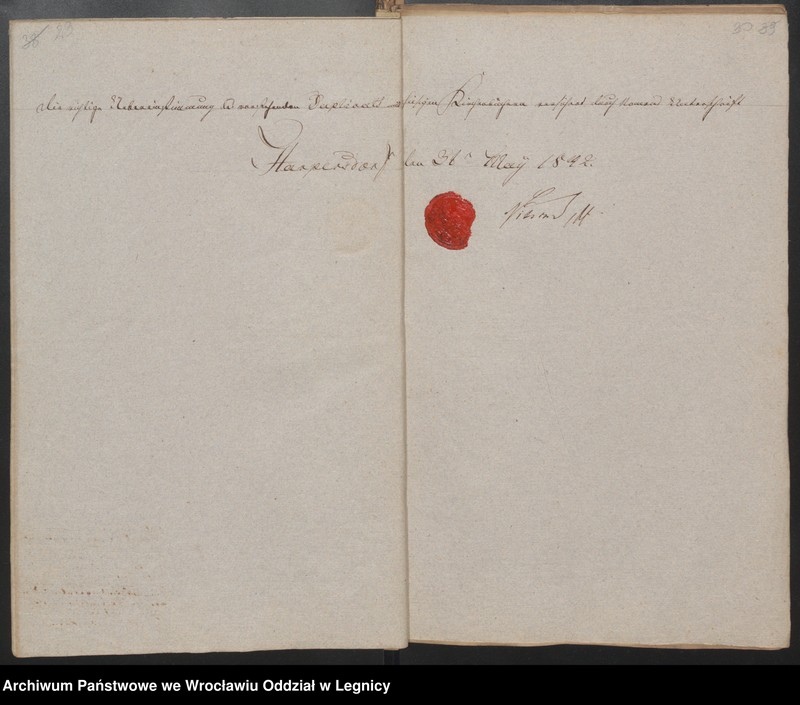 Die richtige Uebereinstimmung des vorstehenden Duplicats mit hiesigen Kirchenbüchern versichert durch Namens Unterschrift
Harpersdorf den 31n May 1842.
Archiwum Państwowe we Wrocławiu Oddział w Legnicy